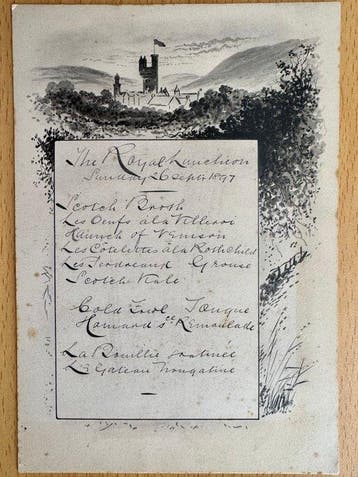 The Royal Luncheon
Sunday 26 Sept: 1897
Scotch Broth
Les Oeufs à la Villeroi
Haunch of Venison
Les Côtelettes à la Rothchild
Les Perdreaux Grouse
Scotch Kale
Cold Fowl Tongue
Homard sce Remoulade
La Bouillie gratinée
Le Gateau Nougatine